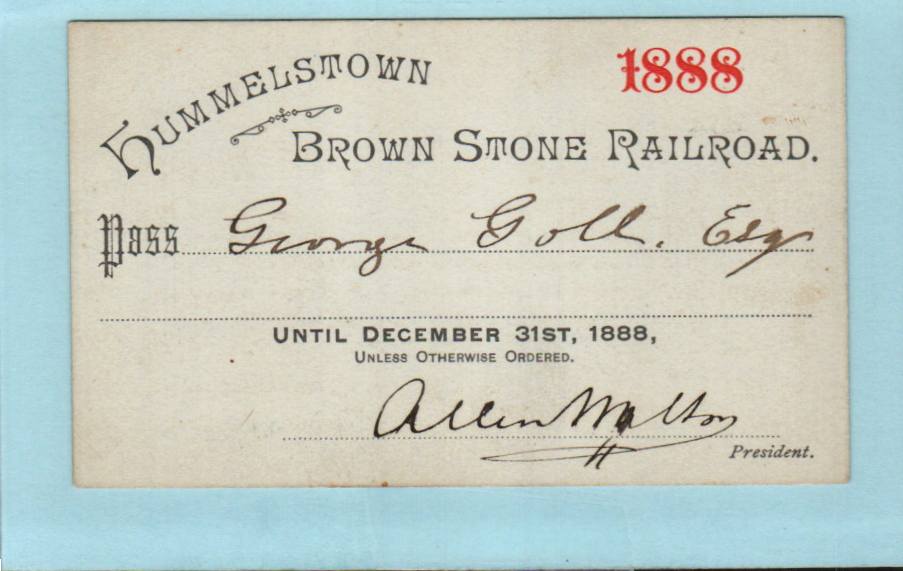 HUMMELSTOWN
1888
BROWN STONE RAILROAD.
Pass George Goll. Esq
UNTIL DECEMBER 31ST, 1888,
UNLESS OTHERWISE ORDERED.
Allen Walton
President.